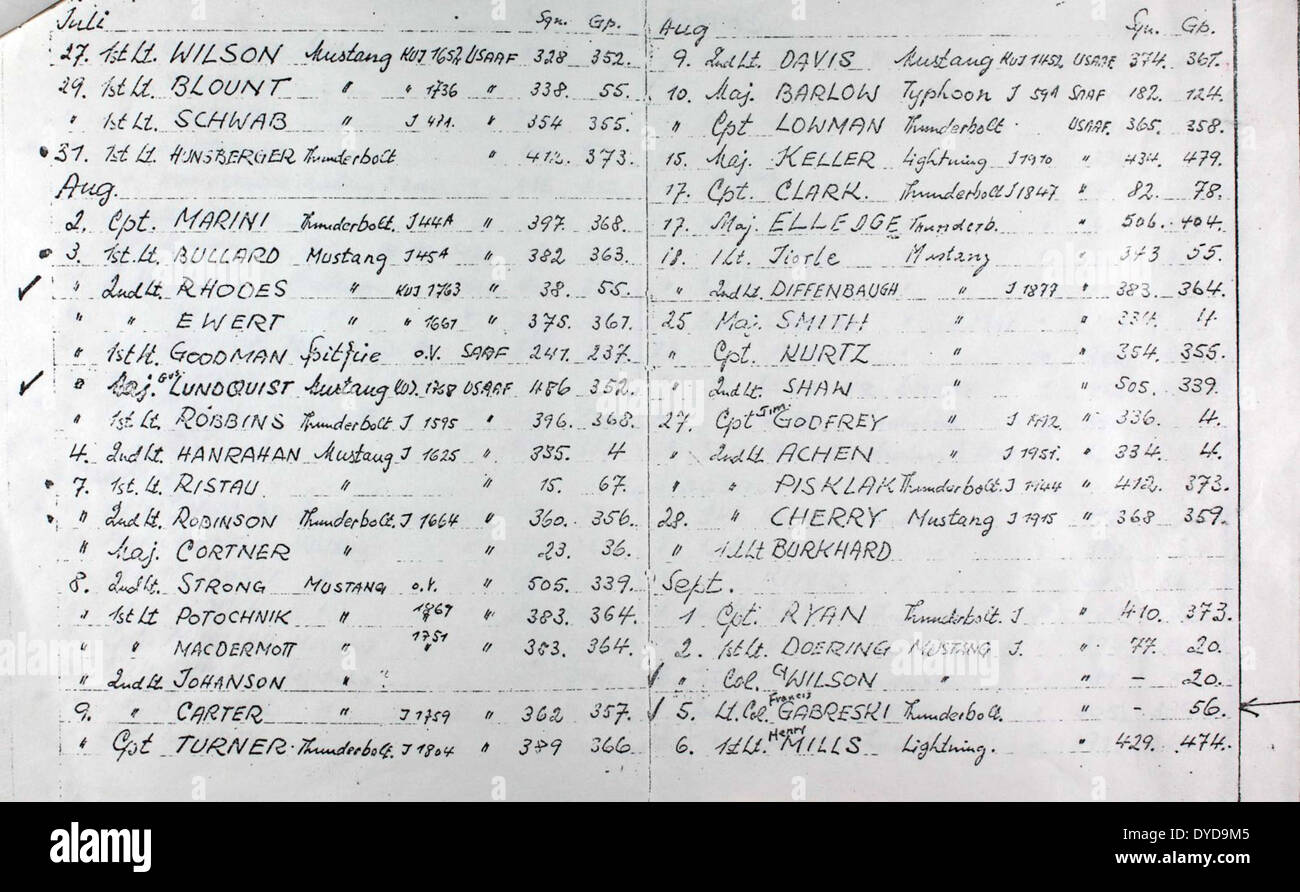 Juli Sqn. Gp.
27. 1st Lt. WILSON Mustang KUJ 1652 USAAF 328 352.
29. 1st Lt. BLOUNT " " 1736 " 338. 55.
" 1st Lt. SCHWAB " J 471. " 354 355.
• 31. 1st Lt. HUNSBERGER Thunderbolt " 412. 373.
Aug.
2. Cpt. MARINI Thunderbolt. J44A " 397. 368.
• 3. 1st. Lt. BULLARD Mustang J45A " 382 363.
✓ " 2nd Lt. RHODES " KUJ 1763 " 38. 55.
" " EWERT " " 1667 " 375. 367.
" 1st Lt. GOODMAN Spitfire o.V. SAAF 241. 237.
✓ " Maj. LUNDQUIST Mustang KUJ. 1768 USAAF 486 352.
" 1st Lt. ROBBINS Thunderbolt J 1595 " 396. 368.
4. 2nd Lt. HANRAHAN Mustang J 1625 " 335. 4
• 7. 1st. Lt. RISTAU " " 15. 67.
• " 2nd Lt. ROBINSON Thunderbolt. J 1664 " 360. 356.
" Maj. CORTNER " " 23. 36.
8. 2nd Lt. STRONG MUSTANG o.V. " 505. 339.
" 1st Lt POTOCHNIK " 1869 " " 383. 364.
" " MACDERMOTT " 1751 " " 383. 364.
" 2nd Lt. JOHANSON " ?
9. " CARTER " J 1759 " 362 357.
" Cpt TURNER. Thunderbolt. J 1804 " 389 366.
Aug Sqn. Gp.
9. 2nd Lt. DAVIS Mustang KUJ 1452 USAAF 374. 361.
10. Maj. BARLOW Typhoon J 59A SAAF 182. 124.
" Cpt LOWMAN Thunderbolt. USAAF. 365. 358.
15. Maj. KELLER Lightning J 1910 " 434. 479.
17. Cpt. CLARK. Thunderbolt J 1847 " 82. 78.
17. Maj. ELLEDGE Thunderb. " 506. 404.
18. 1Lt. Tiorle Mustang " 343 55.
" 2nd Lt. DIFFENBAUGH " J 1877 " 383. 364.
25 Maj. SMITH " " 334. 4.
" Cpt. KURTZ " " 354. 355.
" 2nd Lt. SHAW " " 505. 339.
27. Cpt Jim GODFREY " J 1992. " 336. 4.
" 2nd Lt. ACHEN " J 1951. " 334. 4.
" " PISKLAK Thunderbolt. J 1944 " 412. 373.
28. " CHERRY Mustang J 1915 " 368 359.
" 1st Lt BURKHARD
Sept.
1 Cpt. RYAN Thunderbolt. J " 410. 373.
2. 1st Lt. DOERING MUSTANG J. " 77. 20.
✓ " Col. Cy WILSON " " - 20.
✓ 5. Lt. Col. Francis GABRESKI Thunderbolt. " - 56.
6. 1st Lt. Henry MILLS Lightning. " 429. 474.
alamy
Image ID: DYD9M5
www.alamy.com